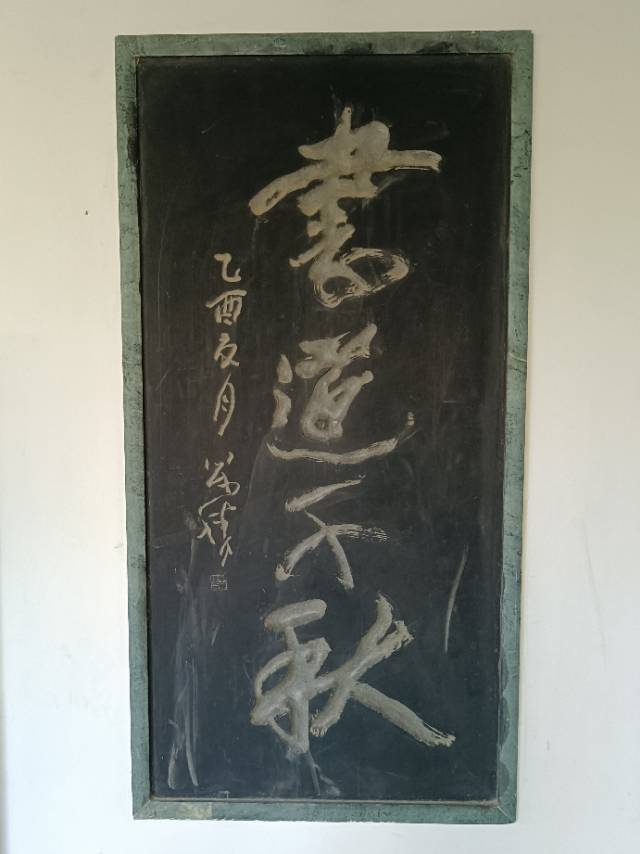 書道千秋
乙酉夏月